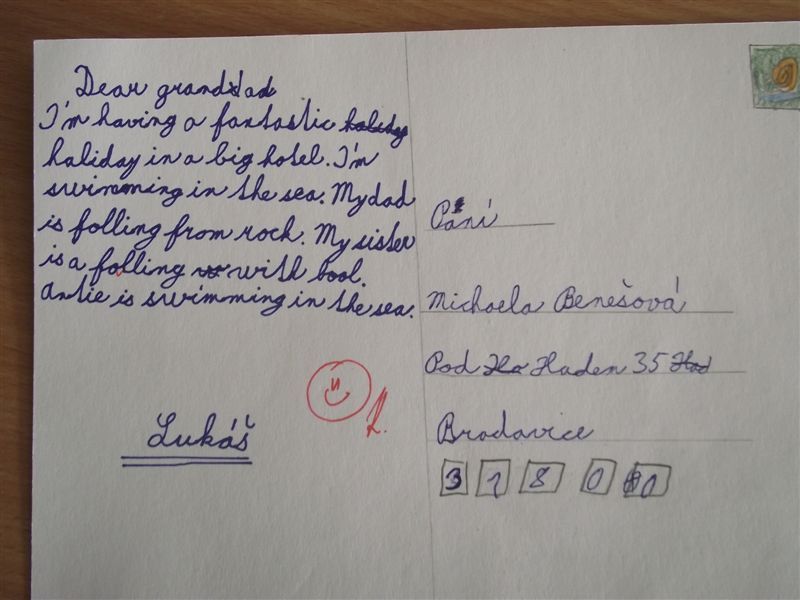 Dear grandad
I'm having a fantastic holiday
haliday in a big hotel. I'm
swimming in the sea. My dad
is folling from rock. My sister
is a folling with bool.
Antie is swimming in the sea.
Lukáš
Paní
Michaela Benešová
Pod Haden 35
Bradavice
3 7 8 0 0